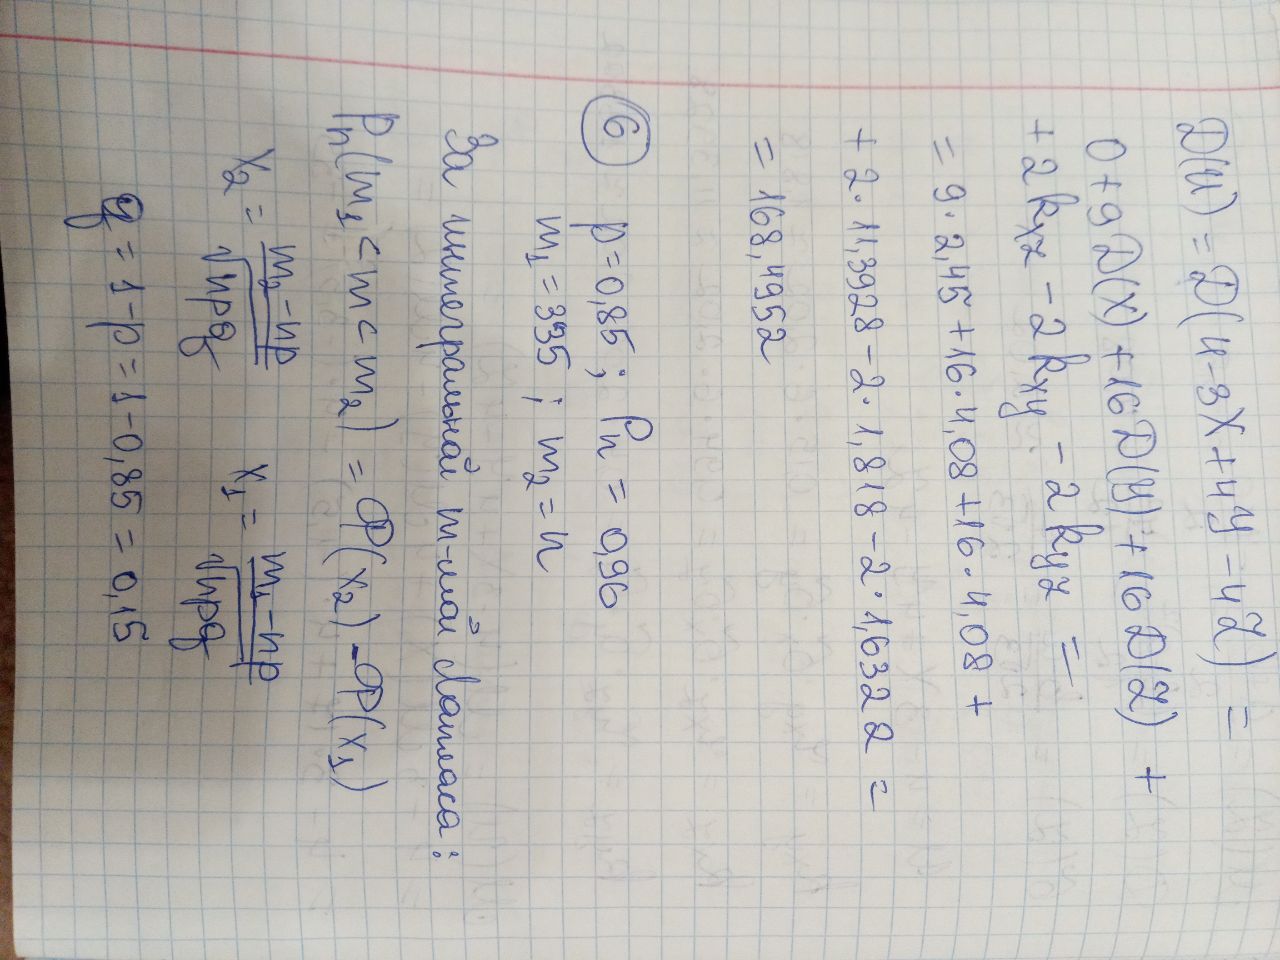 D(U) = D(4-3X+4Y-4Z) =
0+9D(X)+16D(Y)+16D(Z) +
+2kxz - 2kxy - 2kyz =
= 9·2,45+16·4,08+16·4,08 +
+ 2·11,3928-2·1,818-2·1,6322 =
= 168,4952
6 p=0,85; Pn = 0,96
m1=335; m2=n
За интегральной т-мой Лапласа:
Pn(m1<m<m2) = Ф(x2)-Ф(x1)
x2 = m2-np/√npq x1 = m1-np/√npq
q = 1-p=1-0,85=0,15